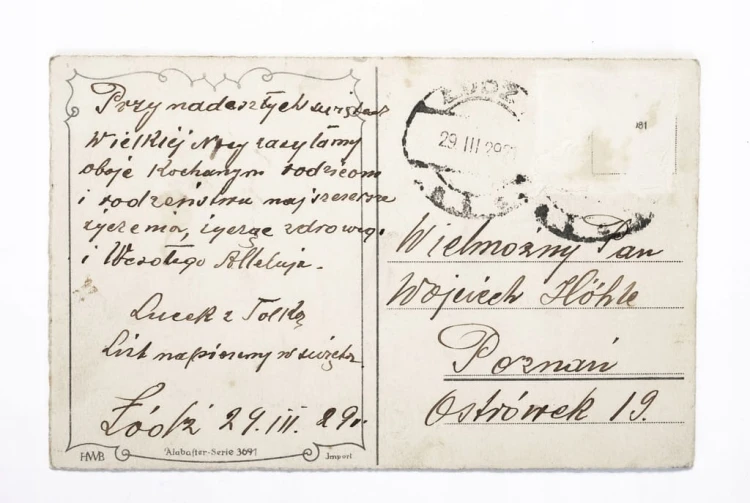 Przy nadeszłych święt
Wielkiéj Nocy zasyłamy
oboje Kochanym rodzicom
i rodzeństwu najszczersze
życzenia, życząc zdrowego
i Wesołego Alleluja.
Lucek z Tolką
List napiszemy w święta
Łódź 29.III.29r.
HWB
Alabaster-Serie 3691
Import
ŁÓDŹ
29 III 29
Wielmożny Pan
Wojciech Höhle
Poznań
Ostrówek 19.